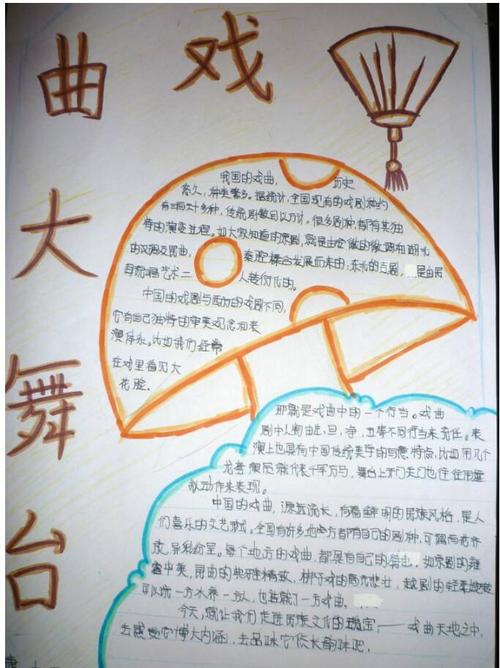 戏
曲
大
舞
台
我国的戏曲, 历史
悠久,种类繁多。据统计,全国现有的戏剧种约
有三百六十多种,传统剧数目以万计。很多剧种,都有其独
特的演变过程。如大家知道的京剧,就是由安徽的徽调和湖北
的汉调及昆曲, 秦腔综合发展而来的;东北的吉剧, 是由民
间歌唱艺术二人转衍化的。
中国的戏剧与西方的戏剧不同,
它有自己独特的审美观念和表
演体系。比如我们经常
在戏里看见大
花脸,
那就是戏曲中的一个行当。戏曲
剧中人物由生,旦,净,丑等不同行当来充任。表
演上也具有中国传统美学的写意特点,比如用几个
龙套演员就代表千军万马,舞台上开门关门也往往用虚
拟动作来表现。
中国的戏曲,源远流长,有着鲜明的民族风格,是人
们喜乐的文艺形式。全国有许多地方都有自己的剧种,可谓百花齐
放,异彩纷呈。每个地方的戏曲,都具有自己的特色,如京剧的雍
容华美,昆曲的典雅精致,梆子戏的高亢悲壮,越剧的轻柔婉转
可以说一方水养一方人,也造就了一方戏曲。
今天,就让我们走进民族文化的瑰宝——戏曲天地之中,
去感受它博大内涵,去品味它悠长韵味吧。